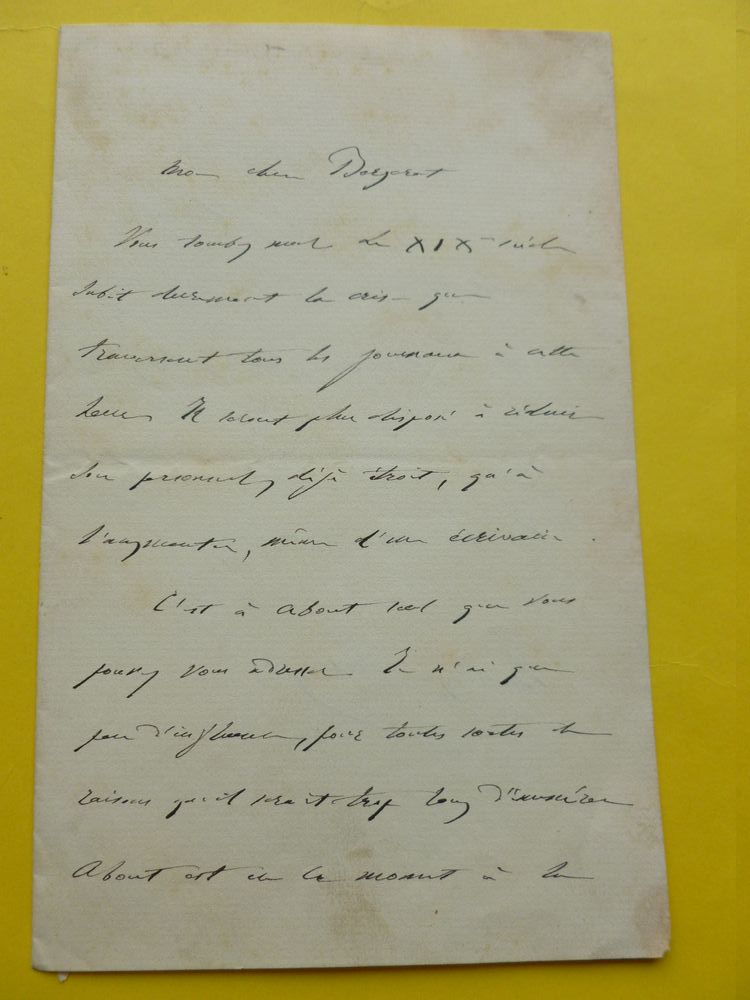 Mon cher Bergerat
Vous tombez mal. Le XIXe siècle
subit durement la crise que
traversent tous les journaux à cette
heure. Il serait plus disposé à réduire
son personnel, déjà étroit, qu'à
l'augmenter, même d'un écrivain.
C'est à About seul que vous
pouvez vous adresser. Je n'ai que
peu d'influence, pour toutes sortes de
raisons qu'il serait trop long d'énumérer
About est en ce moment à la